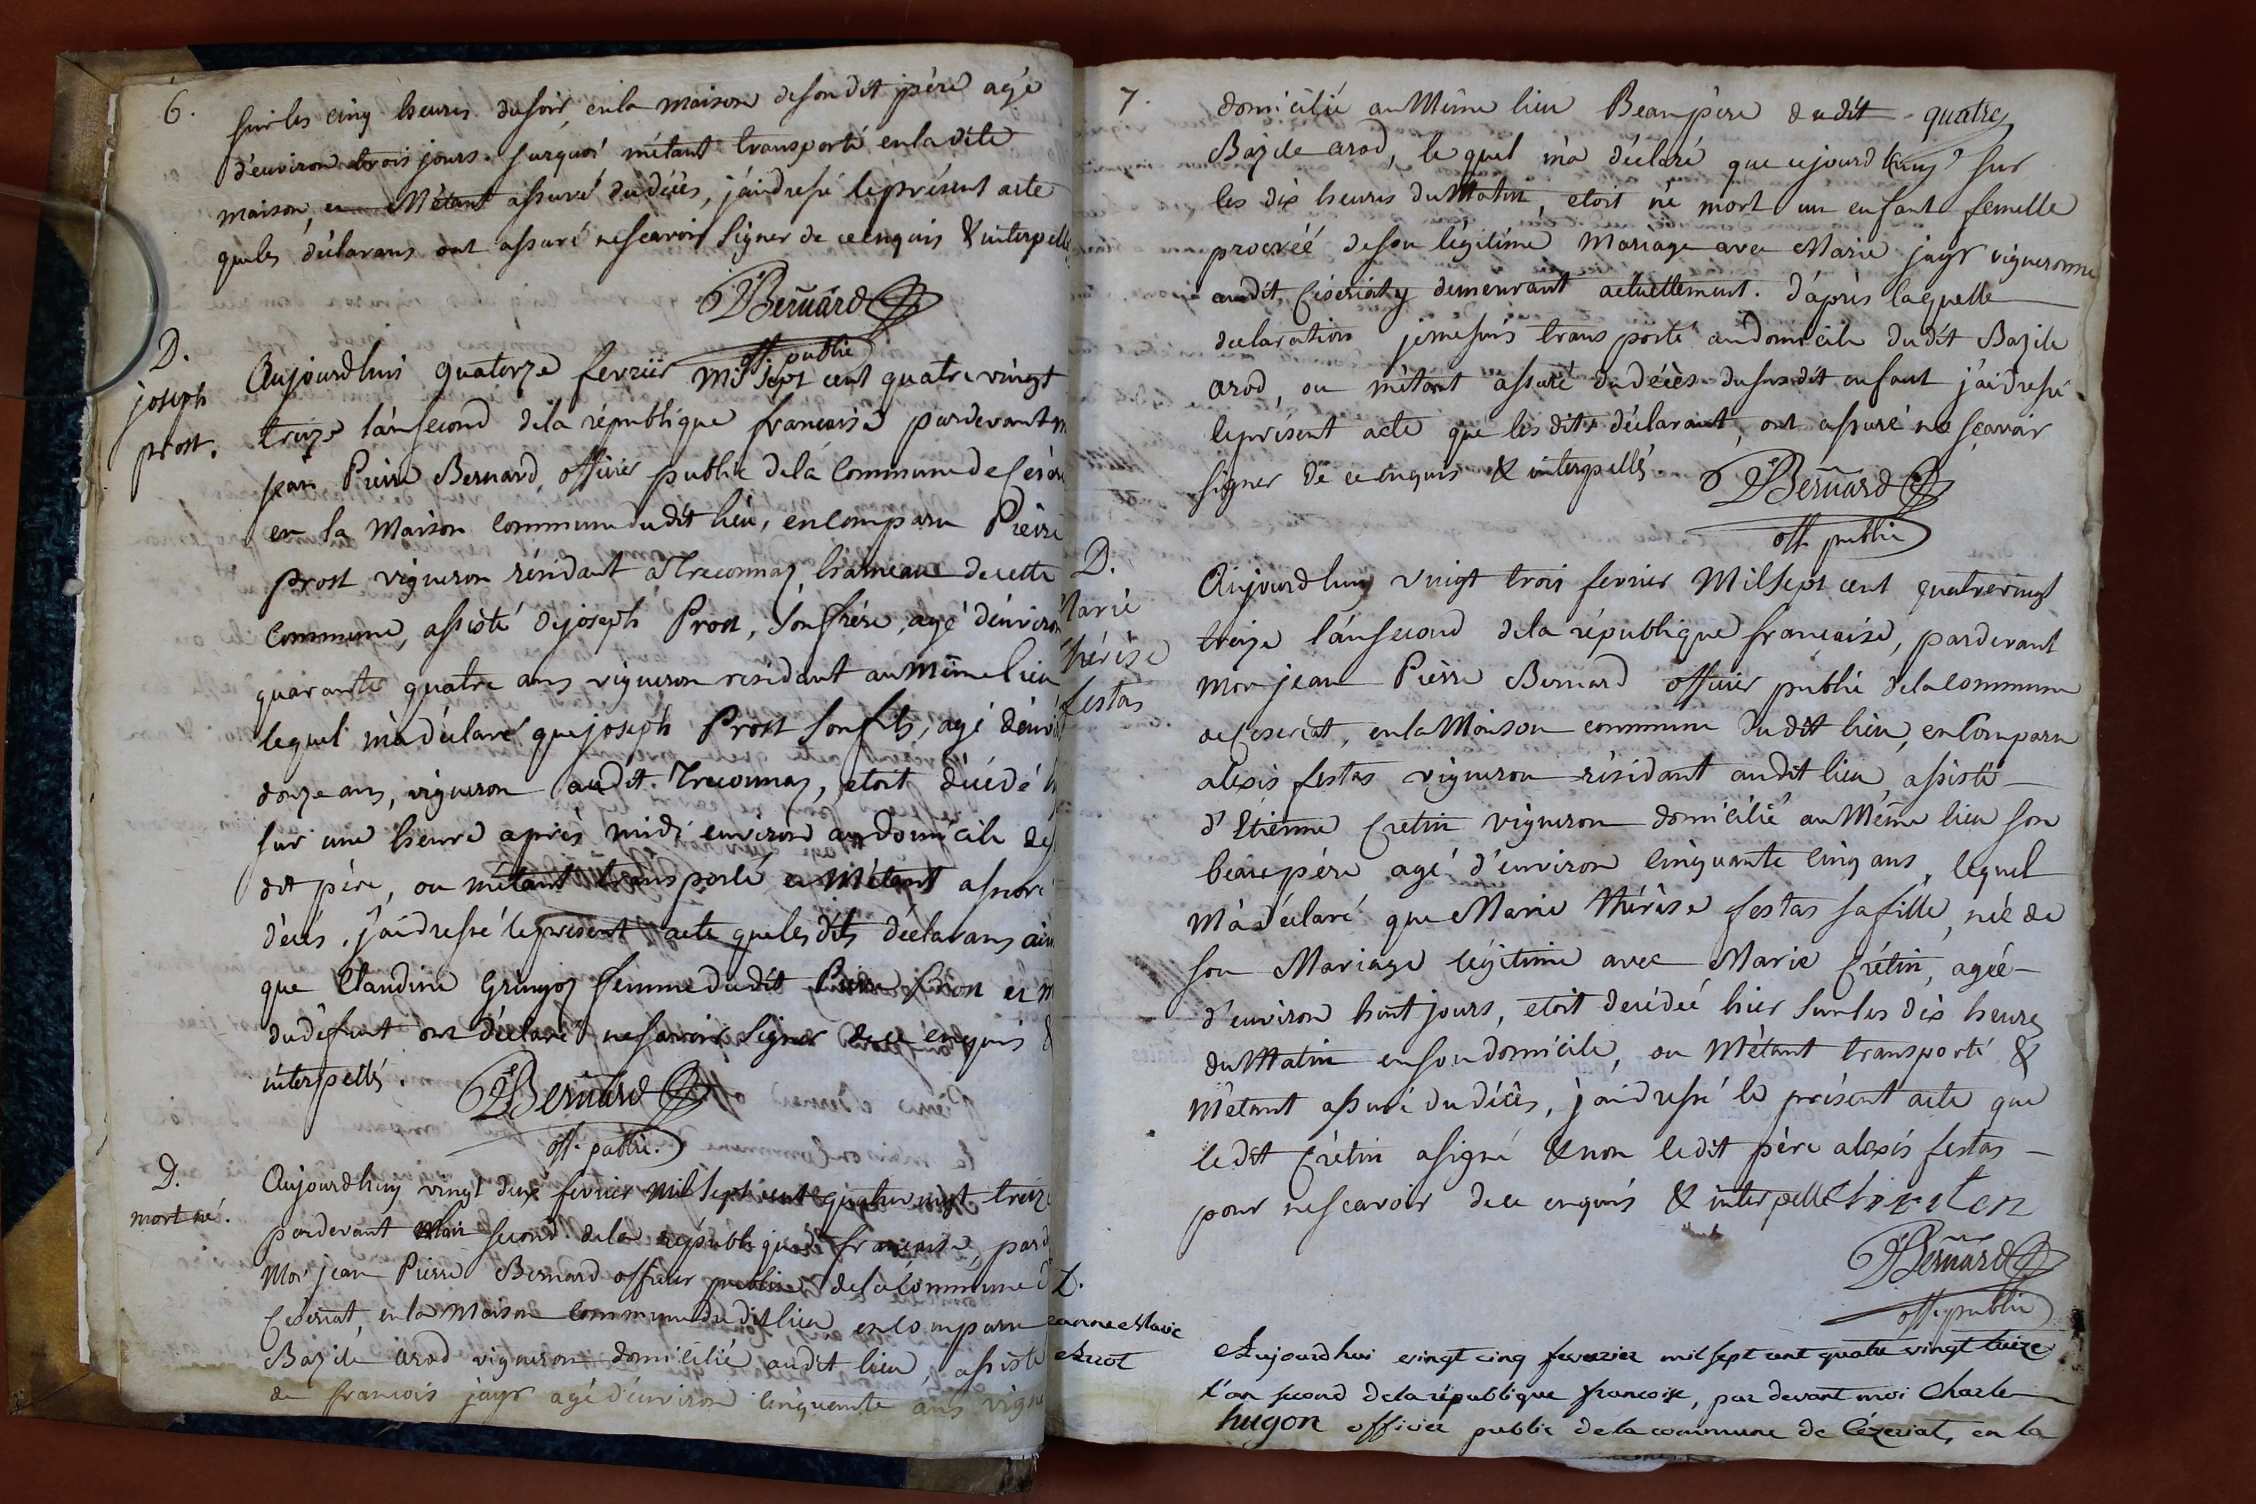 6.
sur les cinq heures du soir, en la maison de son dit père agé
d'environ trois jours. surquoi m'étant transporté en la dite
maison, et M'étant assuré du décès, j'ai dressé le présent acte
que les déclarans ont assuré ne scavoir signer de ce enquis & interpellé
JPBernard
off. public
D.
joseph
prost.
Aujourdhui quatorze fevrier mil sept cent quatre vingt
treize l'an second de la république francaise pardevant m
jean Pierre Bernard, officier public de la Commune de Céséri
en la Maison Commune dudit lieu, en comparu Pierre
Prost vigneron résidant à Treconnaz, hameau de cette
Commune, assisté de joseph Prost, son frère, agé d'environ
quarante quatre ans vigneron residant au Même lieu
lequel m'a déclaré que joseph Prost son fils, agé d'envir
douze ans, vigneron audit Treconnaz, etoit décédé
sur une heure après midi environ au domicile de
dit père, ou m'étant transporté et M'étant assuré
décès, j'ai dressé le présent acte que les dits déclarans ain
que Claudine femme dudit Pierre Prost et m
du défunt ont déclaré ne savoir signer de ce enquis &
interpellés.
JPBernard
off. public.
D.
mort né.
Aujourdhuy vingt deux fevrier Mil Sept cent quatre vingt treize
pardevant l'an second de la république française, pard
Moi jean Pierre Bernard officier public de la Commune d
Céseriat, en la Maison Commune dudit lieu, en comparu
Bazile arod vigneron domicilié audit lieu, assisté
de francois jayr agé d'environ cinquante ans vigne
7.
domicilié au Même lieu Beaupère dudit quatre
Bazile arod, le quel m'a déclaré que cejourdhuy sur
les dix heures du Matin, etoit né mort un enfant femelle
procréé de son légitime Mariage avec Marie jayr vigneronne
audit Céseriat y demeurant actuellement. d'après laquelle
declaration je me suis transporté au domicile dudit Bazile
arod, ou m'étant assuré du décès du susdit enfant j'ai dressé
le présent acte que les dits déclarant, ont assuré ne scavoir
signer de ce enquis & interpellés
JPBernard
off. public
D.
Marie
thérèse
festas
Aujourdhuy vingt trois fevrier Mil sept cent quatrevingt
treize l'an second de la république francaise, pardevant
Moi jean Pierre Bernard officier public de la Commune
de Ceseriat, en la Maison commune dudit lieu, en Comparu
alexis festas vigneron résidant audit lieu, assisté
d'Etienne Cretin vigneron domicilié au Même lieu son
beaupère agé d'environ cinquante cinq ans, lequel
M'a déclaré que Marie thérèse festas sa fille, née de
son Mariage légitime avec Marie Crétin, agée
d'environ huit jours, etoit decédeé hier sur les dix heures
du Matin en son domicile, ou M'étant transporté &
M'étant assuré du décès, j'ai dressé le présent acte que
ledit Crétin a signé & non ledit père alexis festas
pour ne scavoir de ce enquis & interpellé
JPBernard
off. public
D.
eanne Marie
Aujourdhui vingt cinq fevrier mil sept cent quatre vingt treize
l'an second de la république francoise, par devant moi Charle
hugon officier public de la commune de Cézeriat, en la